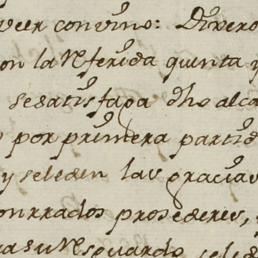 veer convino: Dinero
on la Referida quenta y
se satisfaga dho alca
por primera partid
y se le den las gracias
onrrados procederes,
ra su Resguardo se le d